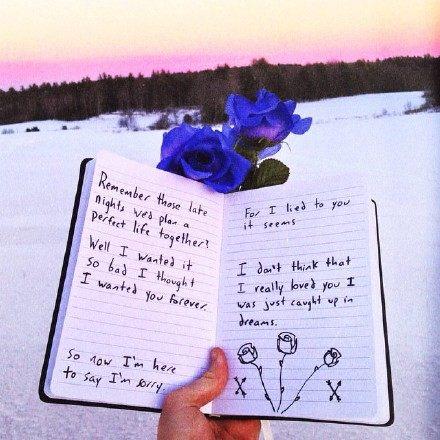 Remember those late
nights we'd plan a
perfect life together?
Well I wanted it
so bad I thought
I wanted you forever.
So now I'm here
to say I'm sorry.
For I lied to you
it seems
I don't think that
I really loved you I
was just caught up in
dreams.